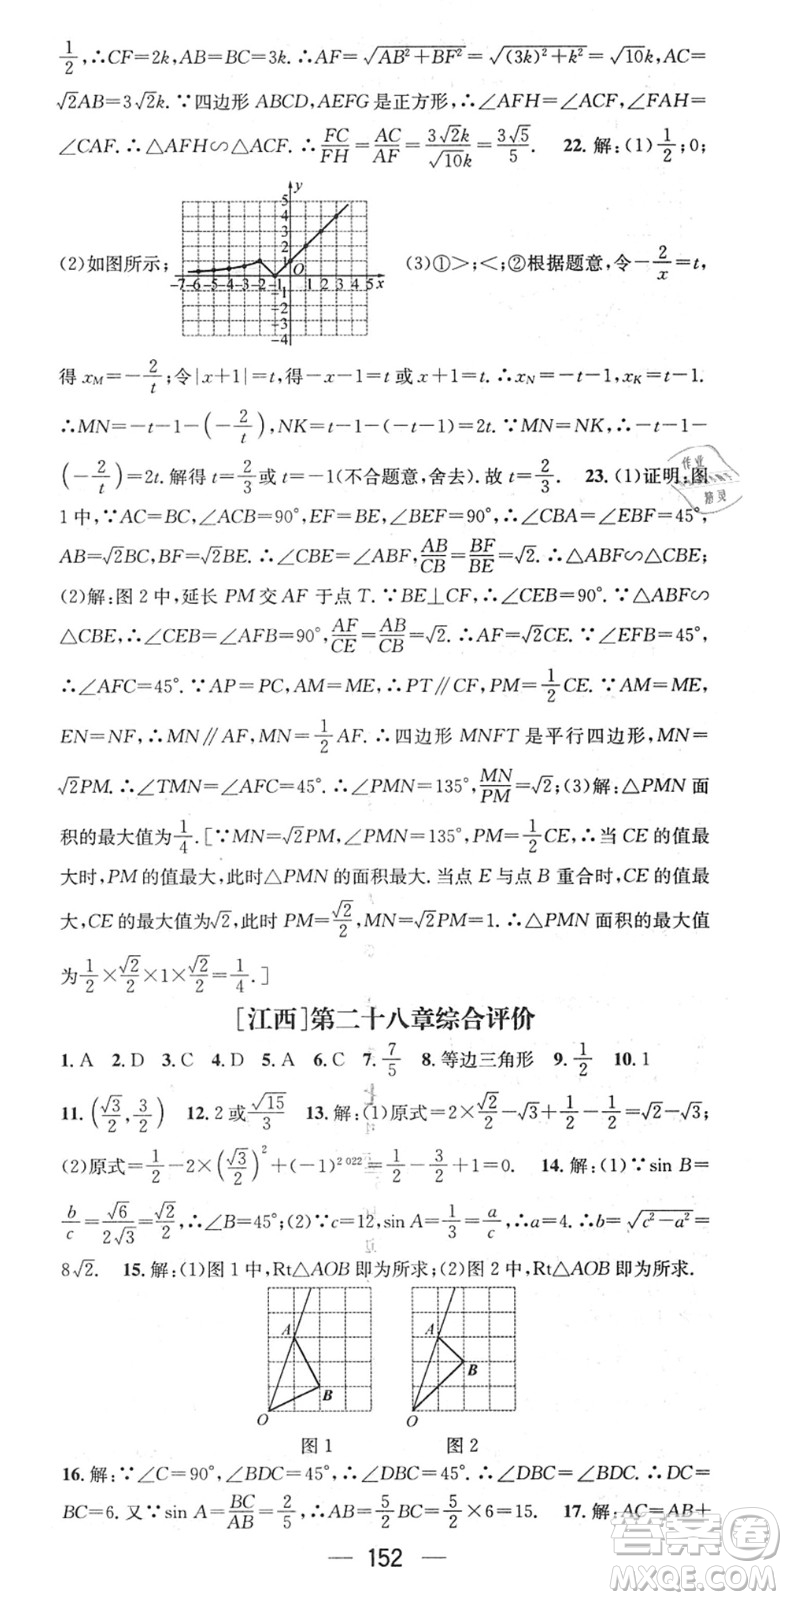 1/2,∴CF=2k,AB=BC=3k.∴AF=√(AB²+BF²)=√((3k)²+k²)=√10k,AC=
√2AB=3√2k.∵四边形 ABCD,AEFG 是正方形,∴∠AFH=∠ACF,∠FAH=
∠CAF.∴△AFH∽△ACF.∴FC/FH=AC/AF=3√2k/√10k=3√5/5. 22.解:(1)1/2;0;
(2)如图所示; (3)①>;<;②根据题意,令-2/x=t,
y
5
4
3
2
1
-7-6-5-4-3-2-1 O 1 2 3 4 5 x
-1
-2
-3
-4
得 x_M=-2/t;令|x+1|=t,得-x-1=t 或 x+1=t.∴x_N=-t-1,x_K=t-1.
∴MN=-t-1-(-2/t),NK=t-1-(-t-1)=2t.∵MN=NK,∴-t-1-
(-2/t)=2t.解得 t=2/3或 t=-1(不合题意,舍去).故 t=2/3. 23.(1)证明:图
1中,∵AC=BC,∠ACB=90°,EF=BE,∠BEF=90°,∴∠CBA=∠EBF=45°,
AB=√2BC,BF=√2BE.∴∠CBE=∠ABF,AB/CB=BF/BE=√2.∴△ABF∽△CBE;
(2)解:图 2 中,延长 PM 交 AF 于点 T.∵BE⊥CF,∴∠CEB=90°.∵△ABF∽
△CBE,∴∠CEB=∠AFB=90°,AF/CE=AB/CB=√2.∴AF=√2CE.∵∠EFB=45°,
∴∠AFC=45°.∵AP=PC,AM=ME,∴PT∥CF,PM=1/2CE.∵AM=ME,
EN=NF,∴MN∥AF,MN=1/2AF.∴四边形 MNFT 是平行四边形,MN=
√2PM.∴∠TMN=∠AFC=45°.∴∠PMN=135°,MN/PM=√2;(3)解:△PMN 面
积的最大值为1/4.[∵MN=√2PM,∠PMN=135°,PM=1/2CE,∴当 CE 的值最
大时,PM 的值最大,此时△PMN 的面积最大.当点 E 与点 B 重合时,CE 的值最
大,CE 的最大值为√2,此时 PM=√2/2,MN=√2PM=1.∴△PMN 面积的最大值
为1/2×√2/2×1×√2/2=1/4.]
[江西]第二十八章综合评价
1.A 2.D 3.A 4.D 5.C 6.C 7.7/5 8.等边三角形 9.1/2 10.1
11.(√3/2,3/2) 12.2或√15/3 13.解:(1)原式=2×√2/2-√3+1/2-1/2=√2-√3;
(2)原式=1/2-2×(√3/2)²+(-1)²⁰²²=1/2-3/2+1=0. 14.解:(1)∵sin B=
b/c=√6/2√3=√2/2,∴∠B=45°;(2)∵c=12,sin A=1/3=a/c,∴a=4.∴b=√(c²-a²)=
8√2. 15.解:(1)图 1 中,Rt△AOB 即为所求;(2)图 2 中,Rt△AOB 即为所求.
A B O
A B O
图 1 图 2
16.解:∵∠C=90°,∠BDC=45°,∴∠DBC=45°.∴∠DBC=∠BDC.∴DC=
BC=6.又∵sin A=BC/AB=2/5,∴AB=5/2BC=5/2×6=15. 17.解:AC=AB+
— 152 —
作业
精灵
答案圈
MXQE.COM